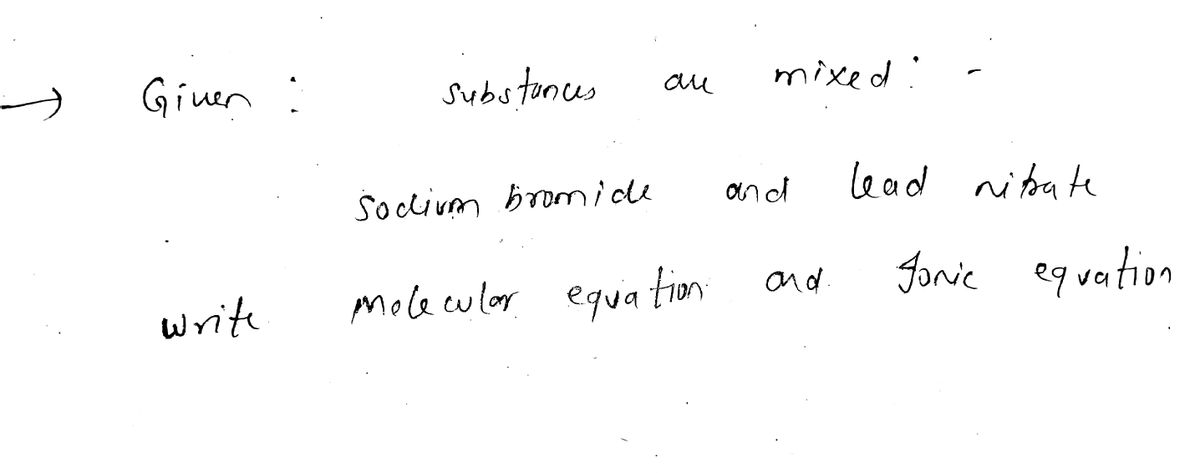 → Given : substances are mixed : -
sodium bromide and lead nitrate
write molecular equation and Ionic equation